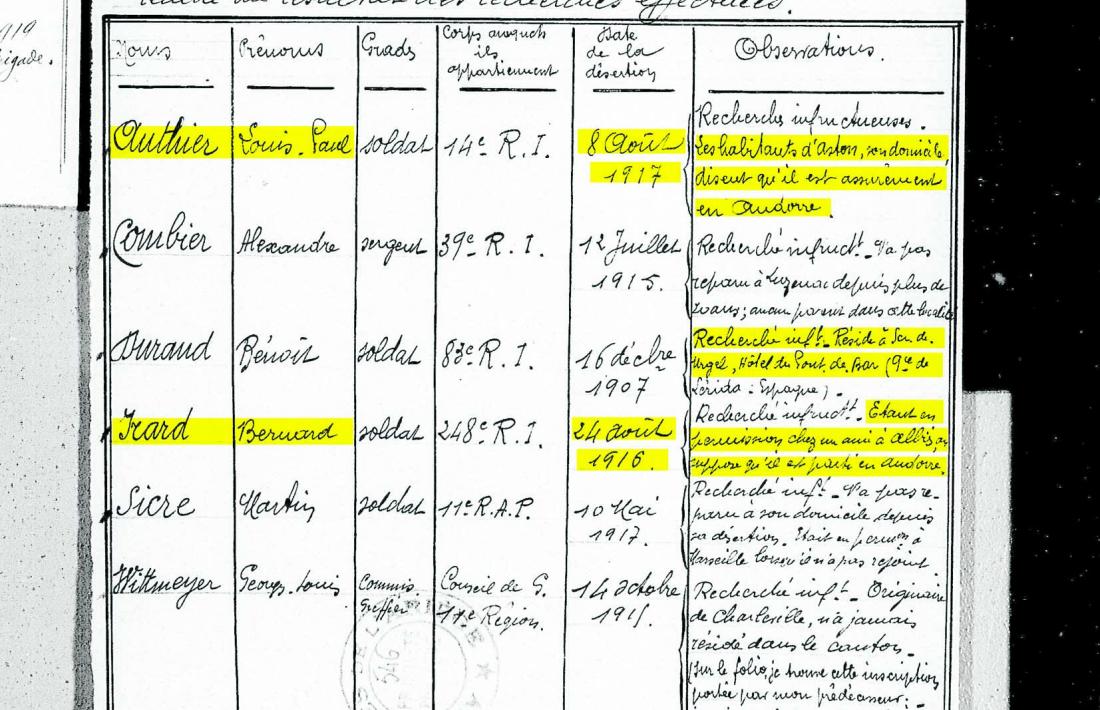 1919
Brigade.
relatif au résultat des recherches effectuées.
Noms
Prénoms
Grads
Corps auxquels
ils
appartiennent
Date
de la
désertion
Observations.
Authier
Louis-Paul
soldat
14e R.I.
8 Août
1917
Recherches infructueuses.
Les habitants d'Aston, son domicile,
disent qu'il est assurément
en Andorre.
Combier
Alexandre
sergent
39e R.I.
12 Juillet
1915.
Recherché infructt. N'a pas
reparu à Luzenac depuis plus de
20 ans; aucun parent dans cette localité
Durand
Bénoît
soldat
83e R.I.
16 décbre
1907
Recherché inft. Réside à Seu de
Urgel, Hôtel du Pont de Bar (Pce de
Lérida: Espagne).
Icard
Bernard
soldat
248e R.I.
24 août
1916.
Recherché infructt. Etant en
permission chez un ami à Albiès, on
suppose qu'il est parti en Andorre.
Sicre
Martin
soldat
11e R.A.P.
10 Mai
1917.
Recherché inft. N'a pas re-
paru à son domicile depuis
sa désertion. Etait en permon à
Marseille lorsqu'il n'a pas rejoint.
Wittmeyer
Georges-Louis
Commis
Greffier
Conseil de G.
11e Région.
14 octobre
1915.
Recherché inft. Originaire
de Charleville, n'a jamais
résidé dans le canton.
Sur le folio, je trouve cette inscription
portée par mon prédécesseur:
546